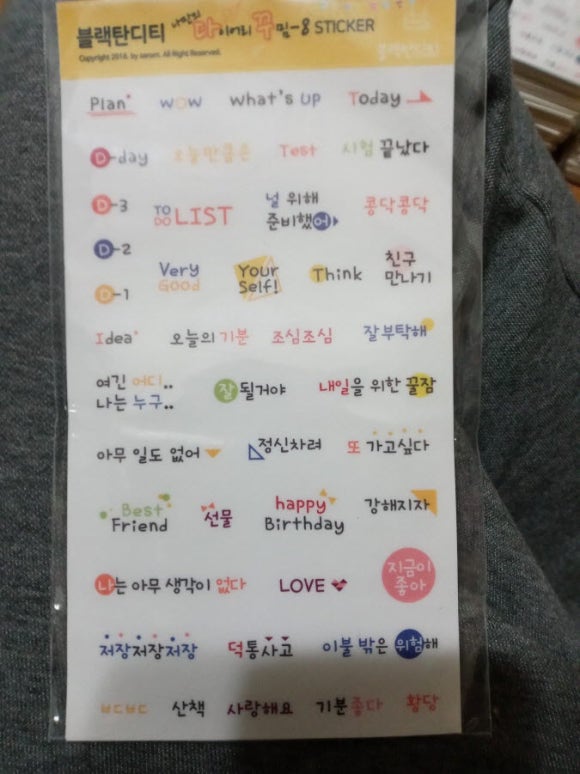 블랙탄디티 나만의 다이어리 꾸밈-8 STICKER
Copyright 2018. by saeam. All Right Reserved.
블랙탄디티
Plan WOW What's UP Today
D-day 오늘만큼은 Test 시험 끝났다
D-3 TO DO LIST 널 위해 준비했어 콩닥콩닥
D-2
D-1 Very Good Your Self! Think 친구 만나기
Idea 오늘의 기분 조심조심 잘부탁해
여긴 어디.. 나는 누구.. 잘될거야 내일을 위한 꿀잠
아무 일도 없어 정신차려 또 가고싶다
Best Friend 선물 happy Birthday 강해지자
나는 아무 생각이 없다 LOVE 지금이 좋아
저장저장저장 덕통사고 이불 밖은 위험해
ㅂㄷㅂㄷ 산책 사랑해요 기분좋다 황당